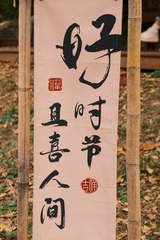 好
时节
且喜人间